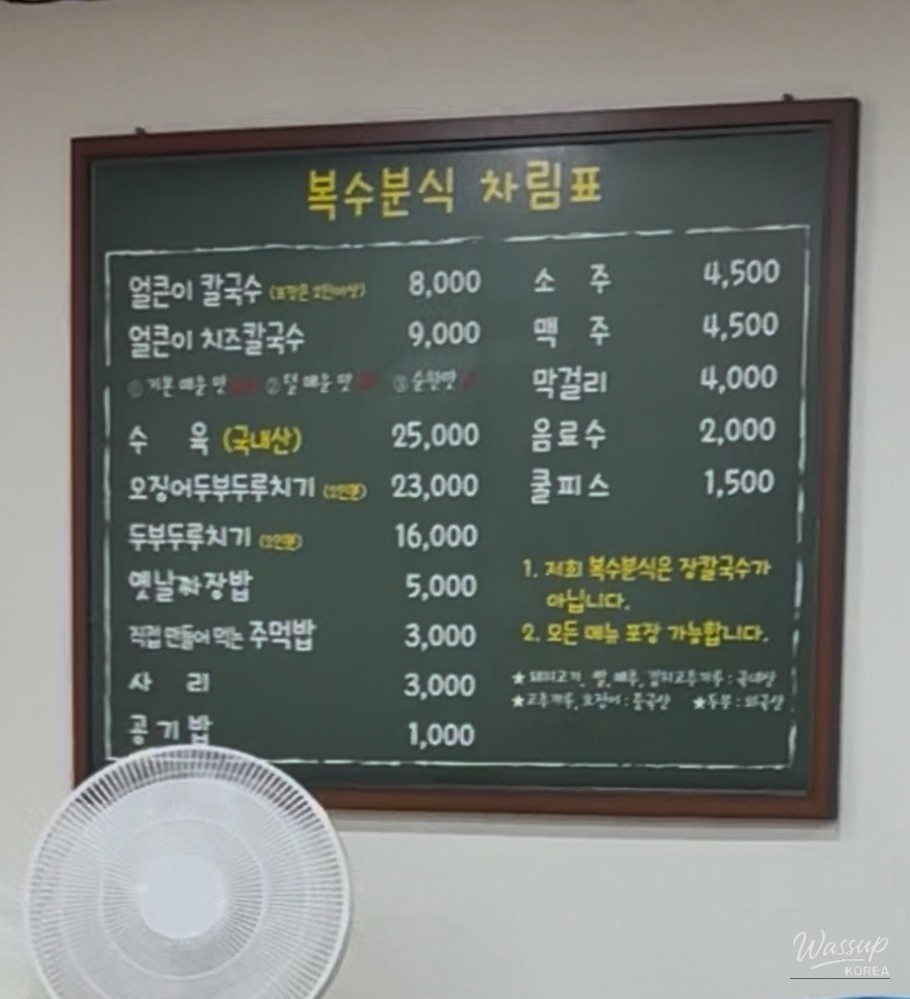 복수분식 차림표
얼큰이 칼국수 (포장은 2인이상) 8,000
얼큰이 치즈칼국수 9,000
①기본 매운 맛 ②덜 매운 맛 ③순한맛
수 육 (국내산) 25,000
오징어두부두루치기 (2인분) 23,000
두부두루치기 (2인분) 16,000
옛날짜장밥 5,000
직접 만들어 먹는 주먹밥 3,000
사 리 3,000
공기밥 1,000
소 주 4,500
맥 주 4,500
막걸리 4,000
음료수 2,000
쿨피스 1,500
1. 저희 복수분식은 장칼국수가
아닙니다.
2. 모든 메뉴 포장 가능합니다.
★돼지고기, 쌀, 배추, 김치고추가루 : 국내산
★고추가루, 오징어 : 중국산 ★두부 : 외국산
Wassup
KOREA